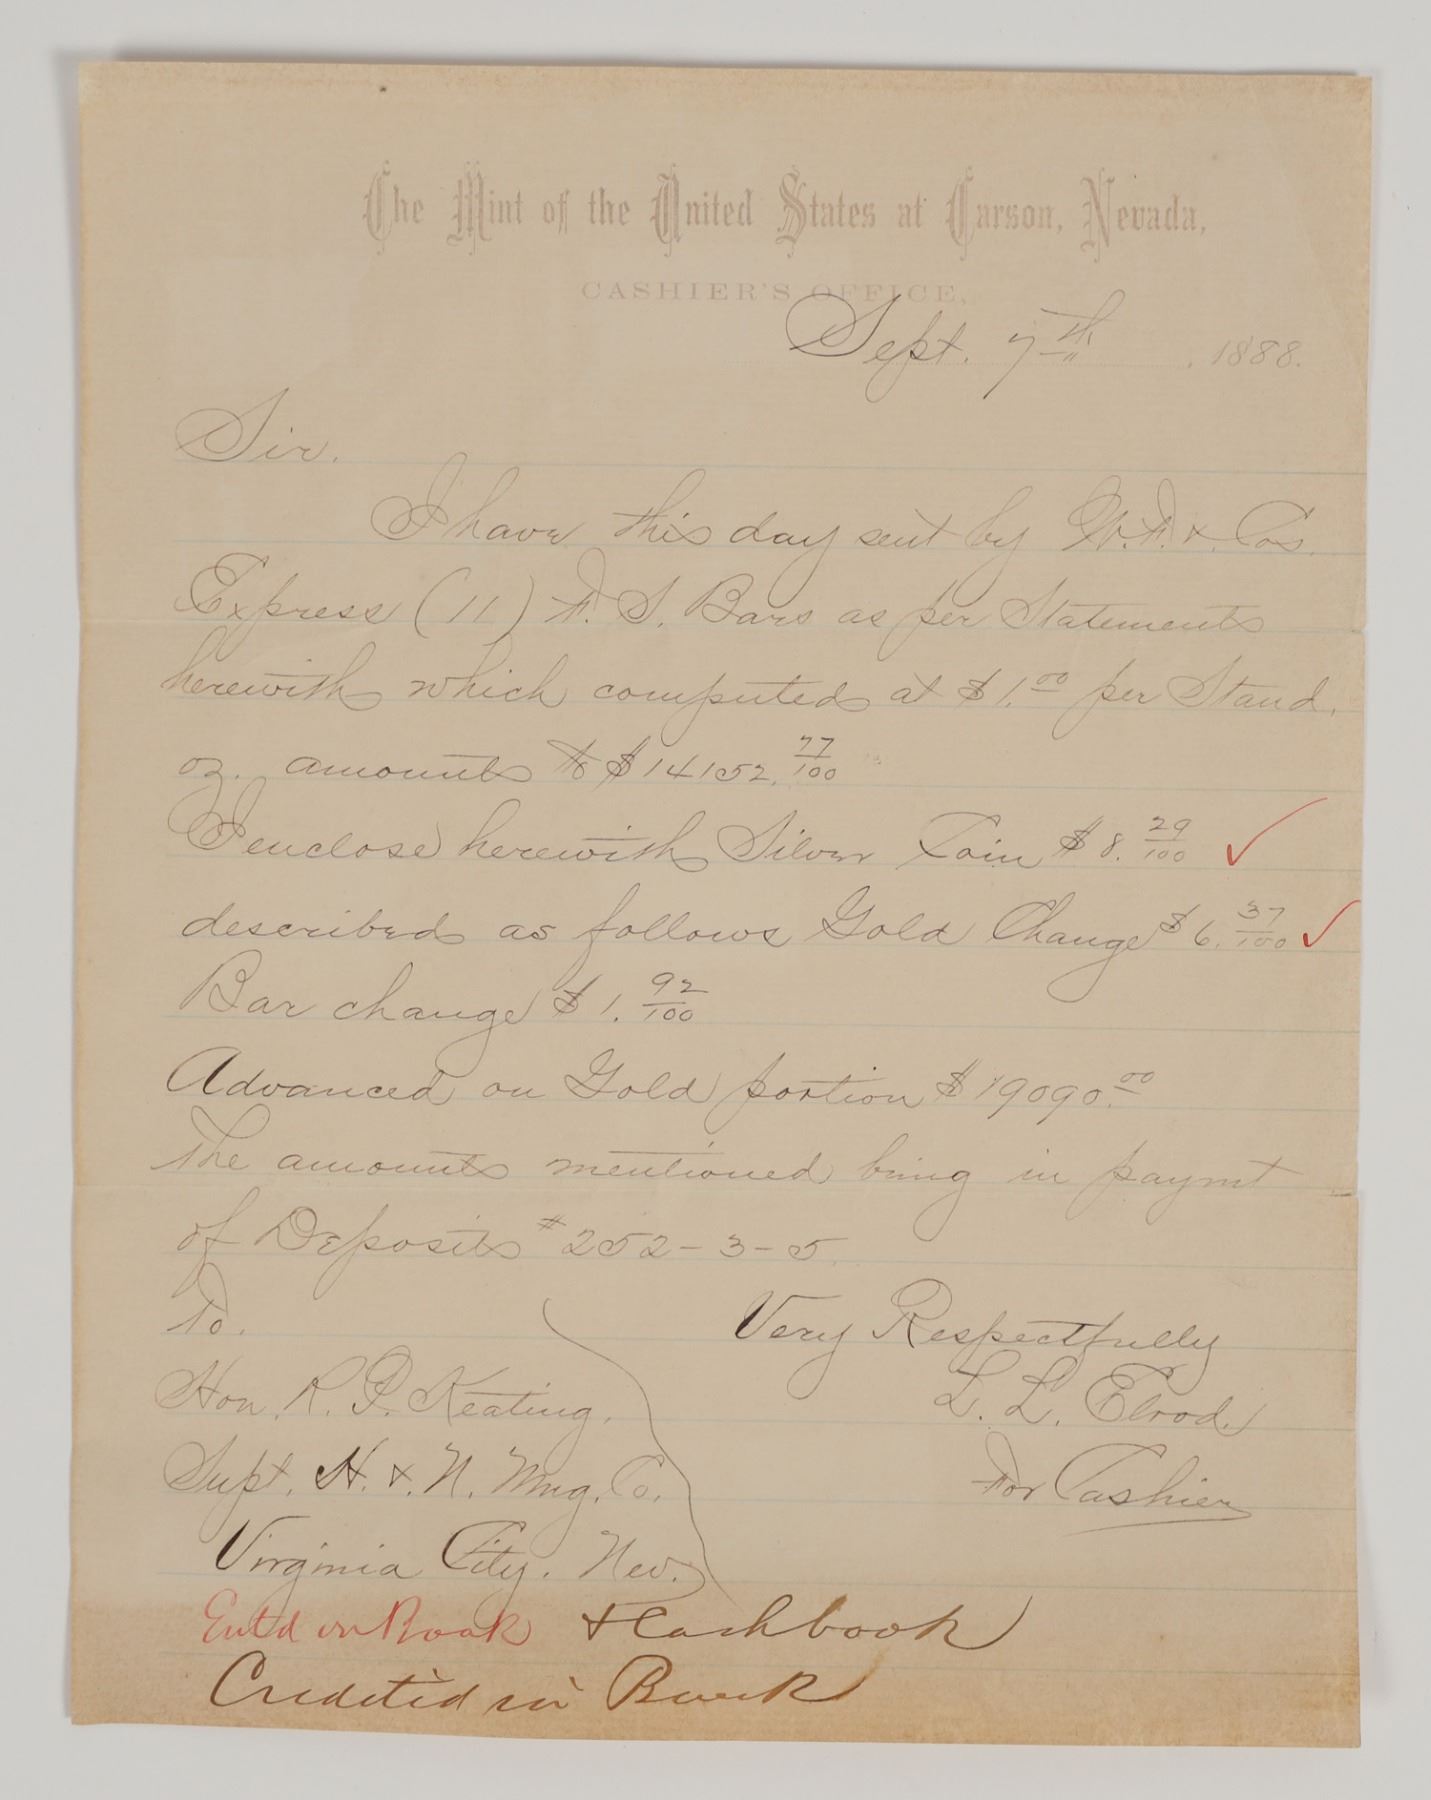 The Mint of the United States at Carson, Nevada,
CASHIER'S OFFICE,
Sept. 7th , 1888.
Sir.
I have this day sent by W. F. & Cos.
Express (11) F. S. Bars as per Statements
herewith which computed at $1.00 per Stand.
oz. amounts to $14152. 77/100
I enclose herewith Silver Coin $8. 29/100 ✓
described as follows Gold Change $6. 37/100 ✓
Bar change $1. 92/100
Advanced on Gold portion $19090.00
The amounts mentioned being in paymt
of Deposits #252-3-5.
To.
Very Respectfully
L. L. Elrod.
For Cashier
Hon. R. P. Keating.
Supt. H. & N. Mng. Co.
Virginia City. Nev.
Entd in Book & Cashbook
Credited in Bank